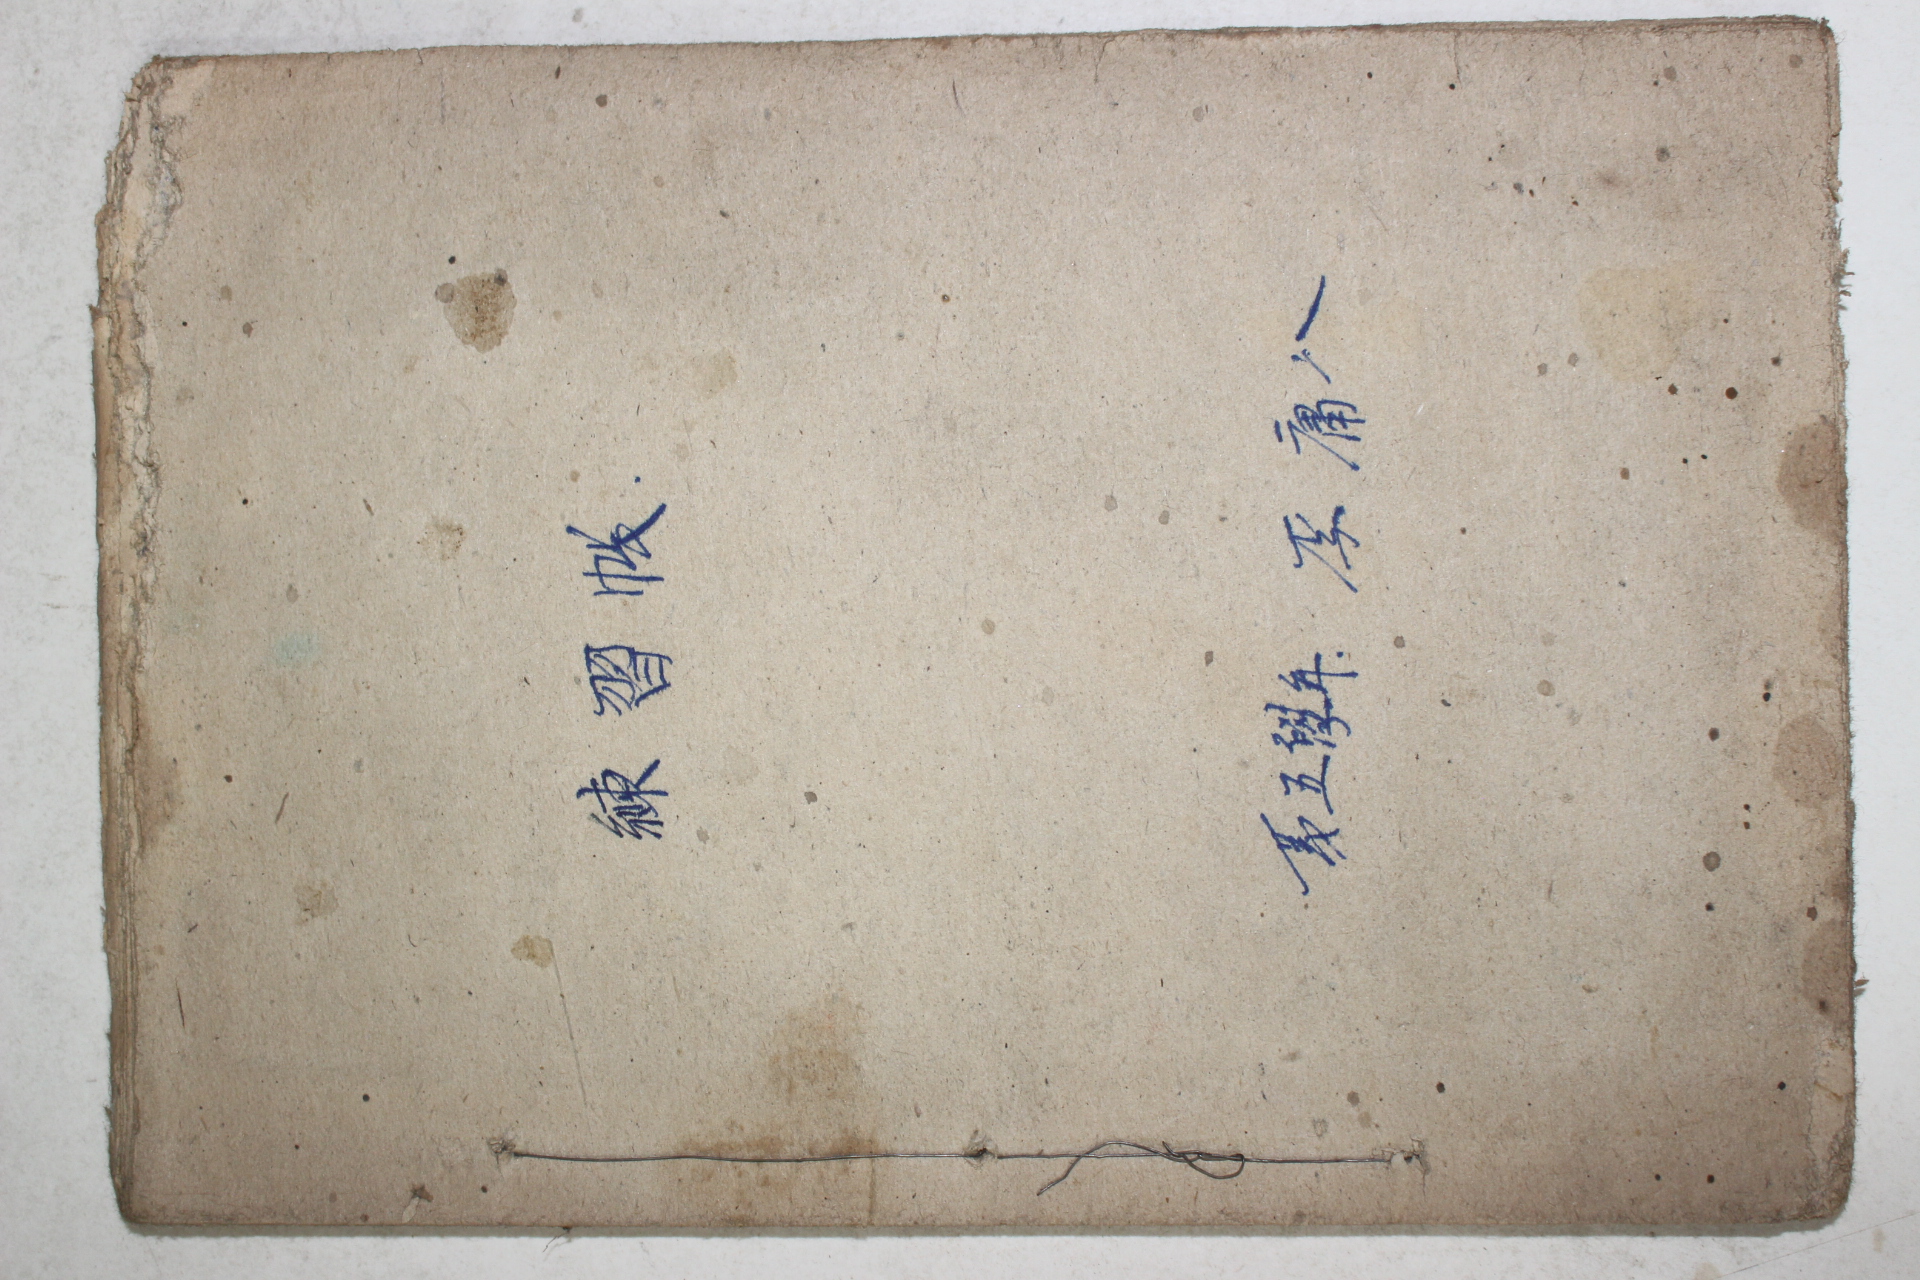 練習帳.
第五學年. 原 庸 八